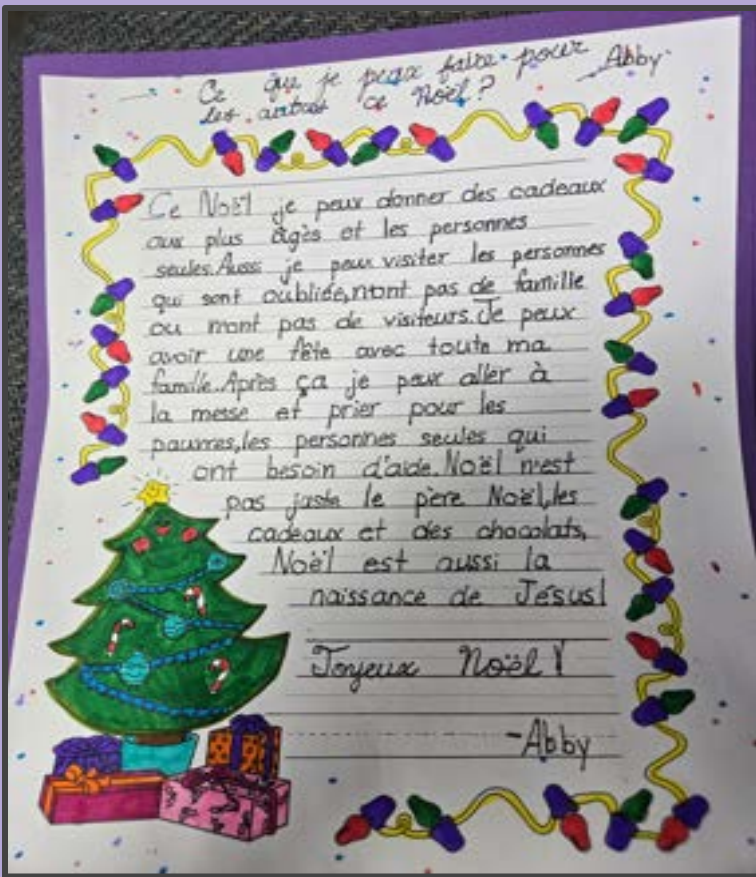 Ce que je peux faire pour
les autres ce Noël?
Abby
Ce Noël je peux donner des cadeaux
aux plus âgés et les personnes
seules. Aussi je peux visiter les personnes
qui sont oubliée, n'ont pas de famille
ou n'ont pas de visiteurs. Je peux
avoir une fête avec toute ma
famille. Après ça je peux aller à
la messe et prier pour les
pauvres, les personnes seules qui
ont besoin d'aide. Noël n'est
pas juste le père Noël, les
cadeaux et des chocolats,
Noël est aussi la
naissance de Jésus!
Joyeux Noël!
-Abby